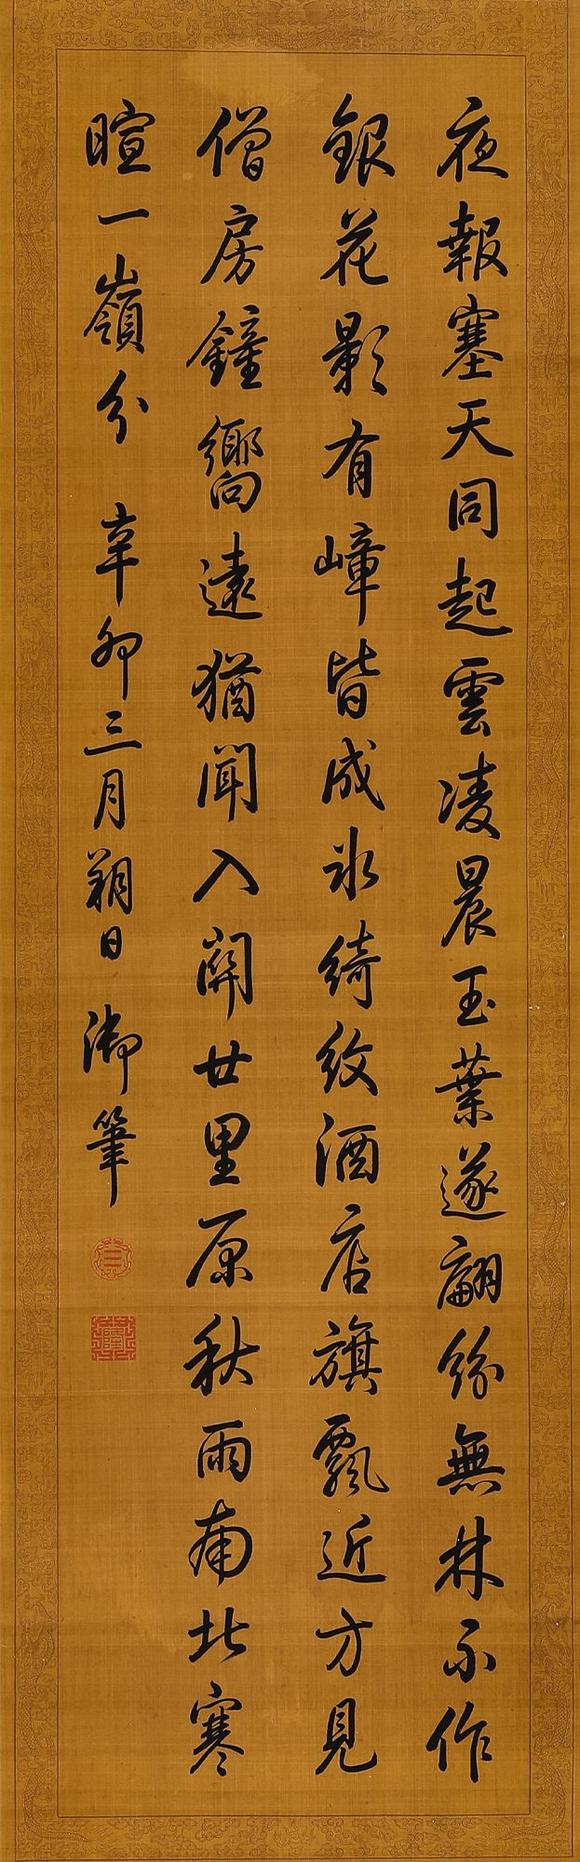 夜報塞天同起雲凌晨玉葉遂翩紛無林不作
銀花影有嶂皆成氷綺紋酒店旗飄近方見
僧房鐘響遠猶聞入關廿里原秋雨南北寒
暄一嶺分 辛卯三月朔日 御筆